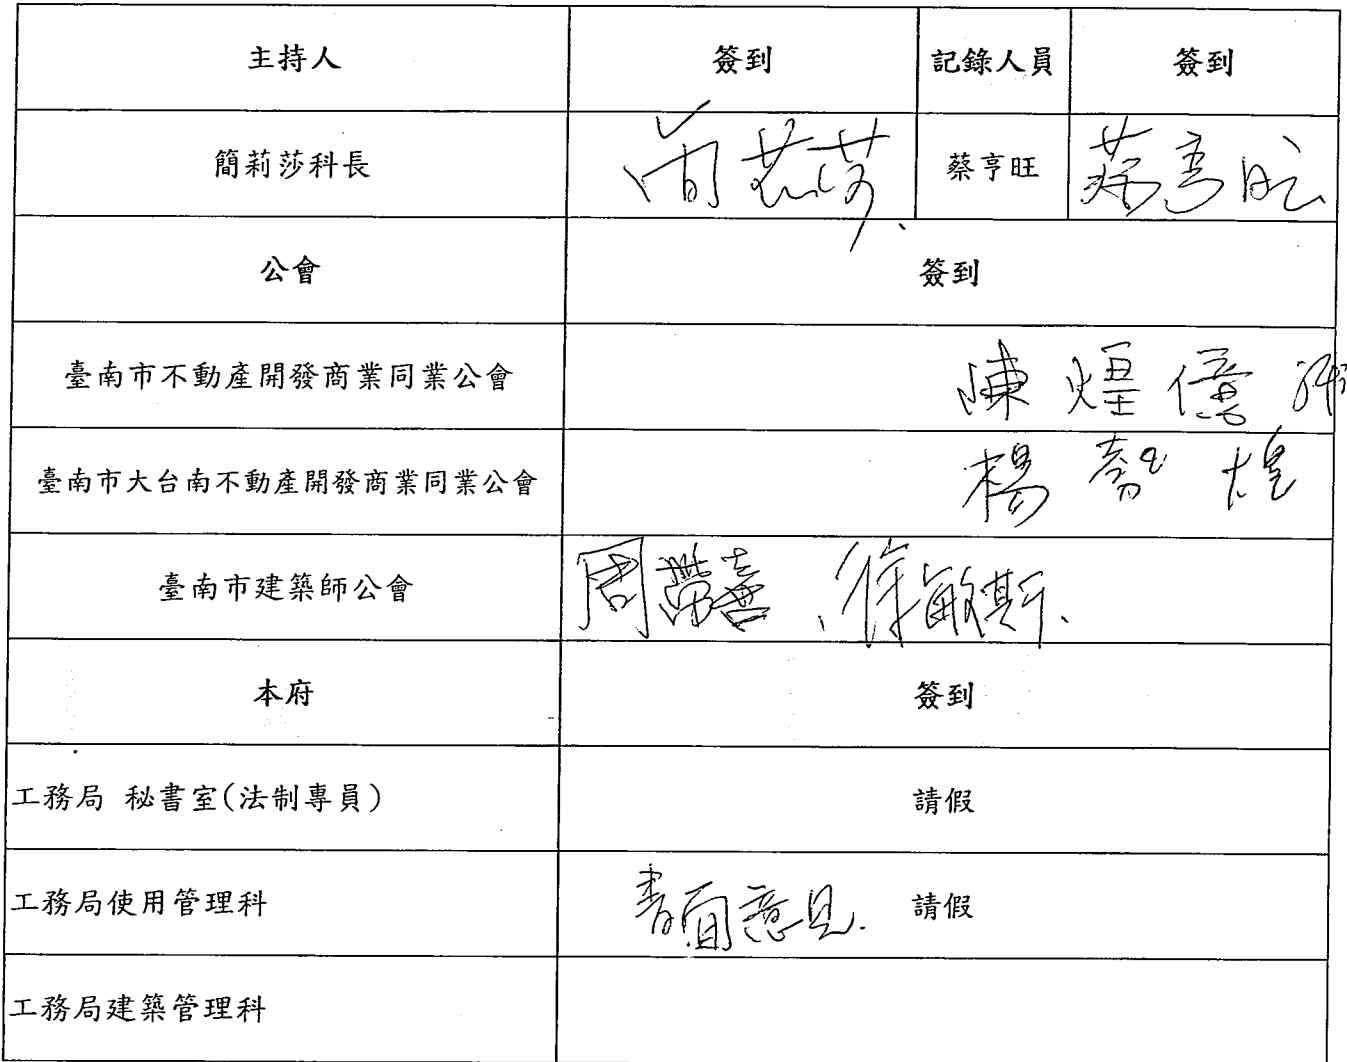 主持人 簽到 記錄人員 簽到
簡莉莎科長 簡莉莎 蔡亨旺 蔡亨旺
公會 簽到
臺南市不動產開發商業同業公會 陳煌僖
臺南市大台南不動產開發商業同業公會 楊 煌
臺南市建築師公會 周榮喜、徐敏斯
本府 簽到
工務局 秘書室(法制專員) 請假
工務局使用管理科 書面意見. 請假
工務局建築管理科